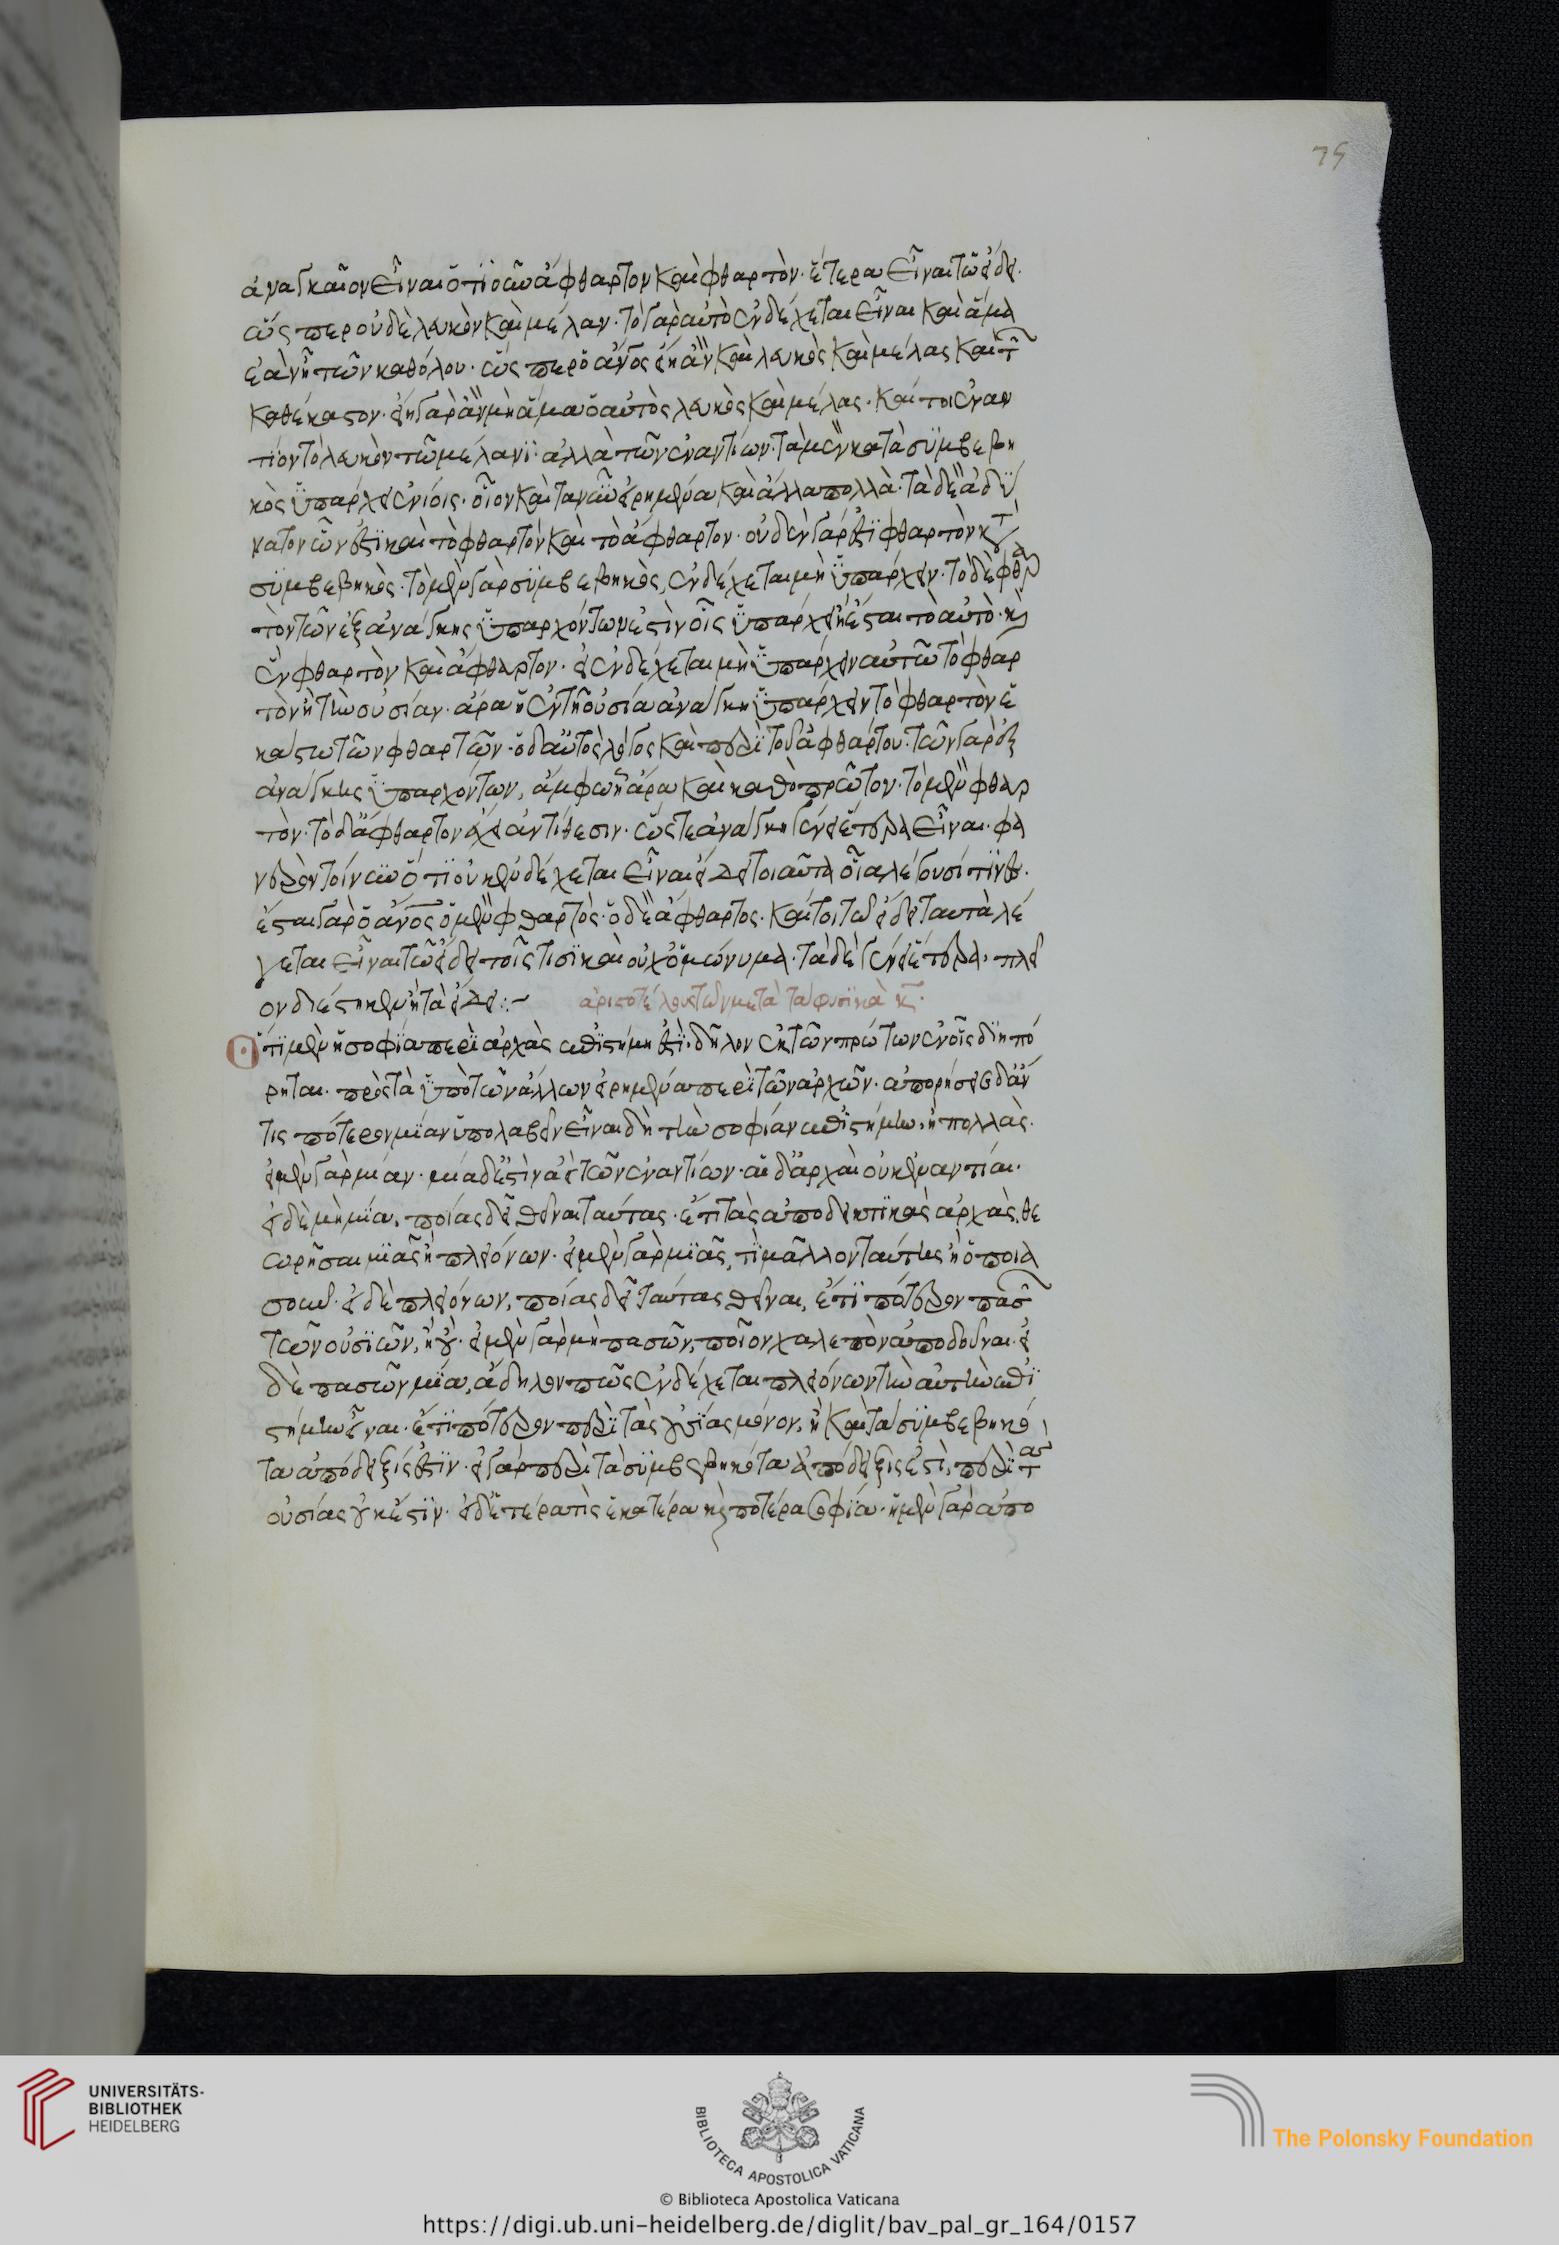 75
ἀναγκαῖον εἶναι ὁτιοῦν ἄφθαρτον καὶ φθαρτὸν· ἕτερα εἶναι τῷ εἴδει·
ὥσπερ οὐδὲ λευκὸν καὶ μέλαν· τὸ γὰρ αὐτὸ ἐνδέχεται εἶναι καὶ ἅμα
ἐὰν ᾖ τῶν καθόλου· ὥσπερ ὁ ἄνος εἴη ἂν καὶ λευκὸς καὶ μέλας καὶ τῶν
καθέκαστον· εἴη γὰρ ἂν μὴ ἅμα ὁ αὐτὸς λευκὸς καὶ μέλας· καίτοι ἐναν
τίον τὸ λευκὸν τῶ μέλανι· ἀλλὰ τῶν ἐναντίων· τὰ μὲν κατὰ συμβεβη
κὸς ὑπάρχει ἐνίοις· οἷον καὶ τὰ νῦν εἰρημένα καὶ ἄλλα πολλὰ· τὰ δὲ ἀδύ
νατον ὧν ἐστὶ καὶ τὸ φθαρτὸν καὶ τὸ ἄφθαρτον· οὐδὲν γάρ ἐστι φθαρτὸν κατὰ
συμβεβηκὸς· τὸ μὲν γὰρ συμβεβηκὸς, ἐνδέχεται μὴ ὑπάρχειν· τὸ δὲ φθαρ
τὸν τῶν ἐξ ἀνάγκης ὑπαρχόντων ἐστὶν οἷς ὑπάρχει ἢ ἔσται τὸ αὐτὸ καὶ
ἓν φθαρτὸν καὶ ἄφθαρτον· εἰ ἐνδέχεται μὴ ὑπάρχειν αὐτῶ τὸ φθαρ
τὸν ἢ τὴν οὐσίαν· ἄρα ἢ ἐν τῆ οὐσία ἀνάγκη ὑπάρχειν τὸ φθαρτὸν ἑ
κάστω τῶν φθαρτῶν· ὁ δ' αὐτὸς λόγος καὶ περὶ τοῦ ἀφθάρτου· τῶν γὰρ ἐξ
ἀνάγκης ὑπαρχόντων, ἄμφω ἧ ἄρα καὶ καθὸ πρῶτον· τὸ μὲν φθαρ
τὸν· τὸ δ' ἄφθαρτον ἔχει ἀντίθεσιν· ὥστε ἀνάγκη γένει ἕτερα εἶναι· φα
νερὸν τοίνυν ὅτι οὐκ ἐνδέχεται εἶναι εἴδει τοιαῦτα οἷα λέγουσί τινες·
ἔσται γὰρ ὁ ἄνος ὁ μὲν φθαρτὸς· ὁ δὲ ἄφθαρτος· καίτοι τῶ εἴδει ταυτὰ λέ
γεται εἶναι τῶ εἴδει τοῖς τισὶ καὶ οὐχ ὁμώνυμα· τὰ δὲ γένει ἕτερα, πλεῖ
ον διέστηκεν ἢ τὰ εἴδει:~ ἀριστοτέλους τῶν μετὰ τὰ φυσικὰ κ·
ὅτι μὲν ἡ σοφία περὶ ἀρχὰς ἐπιστήμη ἐστὶ· δῆλον ἐκ τῶν πρώτων ἐν οἷς διηπό
ρηται· πρὸς τὰ ὑπὸ τῶν ἄλλων εἰρημένα περὶ τῶν ἀρχῶν· ἀπορήσειε δ' ἄν
τις πότερον μίαν ὑπολαβεῖν εἶναι δὴ τὴν σοφίαν ἐπιστήμην, ἢ πολλὰς·
εἰ μὲν γὰρ μίαν· μία δ' ἐστὶν ἀεὶ τῶν ἐναντίων· αἱ δ' ἀρχαὶ οὐκ ἐναντίαι·
εἰ δὲ μὴ μία, ποίας δεῖ θεῖναι ταύτας· ἔτι τὰς ἀποδεικτικὰς ἀρχὰς, θε
ωρῆσαι μιᾶς ἢ πλειόνων· εἰ μὲν γὰρ μιᾶς, τί μᾶλλον ταύτης ἢ ὁποια
σοῦν· εἰ δὲ πλειόνων, ποίας δεῖ ταύτας θεῖναι, ἔτι πότερον πασῶν
τῶν οὐσιῶν, ἢ οὐ· εἰ μὲν γὰρ μὴ πασῶν, ποῖον χαλεπὸν ἀποδοῦναι· εἰ
δὲ πασῶν μία, ἄδηλον πῶς ἐνδέχεται πλειόνων τὴν αὐτὴν ἐπι
στήμην εἶναι· ἔτι πότερον περὶ τὰς οὐσίας μόνον, ἢ καὶ τὰ συμβεβηκό
τα ἀπόδειξίς ἐστιν· εἰ γὰρ περὶ τὰ συμβεβηκότα ἀπόδειξις ἐστὶ, περὶ τὰς
οὐσίας οὐκ ἔστιν· εἰ δ' ἑτέρα τὶς ἑκατέρα καὶ ποτέρα σοφία· ἡ μὲν γὰρ ἀπο
UNIVERSITÄTS-
BIBLIOTHEK
HEIDELBERG
BIBLIOTECA APOSTOLICA VATICANA
The Polonsky Foundation
© Biblioteca Apostolica Vaticana
https://digi.ub.uni-heidelberg.de/diglit/bav_pal_gr_164/0157